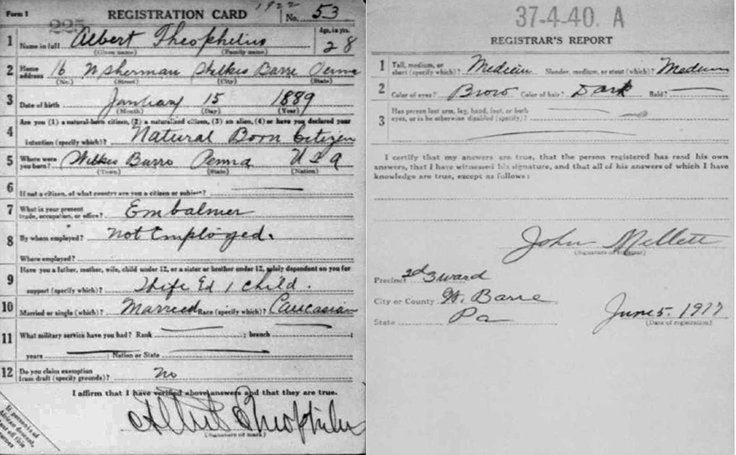 Form 1 1922
225 REGISTRATION CARD No. 53
1 Name in full Albert Theophilus Age, in yrs. 28
(Given name) (Family name)
2 Home address 16 N Sherman Wilkes Barre Penna
(No.) (Street) (City) (State)
3 Date of birth January 15 1889
(Month) (Day) (Year)
Are you (1) a natural-born citizen, (2) a naturalized citizen, (3) an alien, (4) or have you declared your
4 intention (specify which)? Natural Born Citizen
5 Where were you born? Wilkes Barre Penna USA
(Town) (State) (Nation)
6 If not a citizen, of what country are you a citizen or subject?
7 What is your present trade, occupation, or office? Embalmer
8 By whom employed? Not Employed.
Where employed?
Have you a father, mother, wife, child under 12, or a sister or brother under 12, solely dependent on you for
9 support (specify which)? Wife 1 Child.
10 Married or single (which)? Married Race (specify which)? Caucasian
11 What military service have you had? Rank ; branch
years ; Nation or State
12 Do you claim exemption from draft (specify grounds)? No
I affirm that I have verified above answers and that they are true.
Albert Theophilus
(Signature or mark)
If person is of African descent, tear off this corner
37-4-40. A
REGISTRAR'S REPORT
1 Tall, medium, or short (specify which)? Medium Slender, medium, or stout (which)? Medium
2 Color of eyes? Brow Color of hair? Dark Bald?
3 Has person lost arm, leg, hand, foot, or both eyes, or is he otherwise disabled (specify)?
I certify that my answers are true, that the person registered has read his own
answers, that I have witnessed his signature, and that all of his answers of which I have
knowledge are true, except as follows:
John Mellett
(Signature of registrar)
Precinct 3d 3 ward
City or County W. Barre
State Pa
June 5. 1917
(Date of registration)